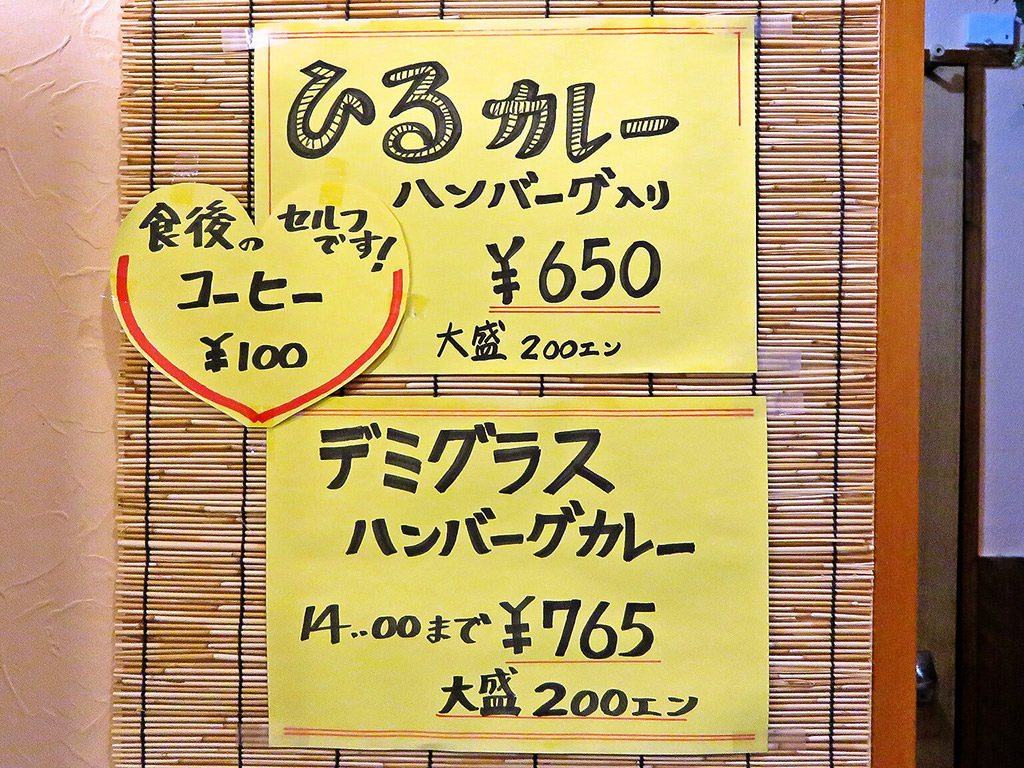 ひるカレー
ハンバーグ入り
¥650
大盛 200エン
食後の
セルフ
です!
コーヒー
¥100
デミグラス
ハンバーグカレー
14:00まで ¥765
大盛 200エン